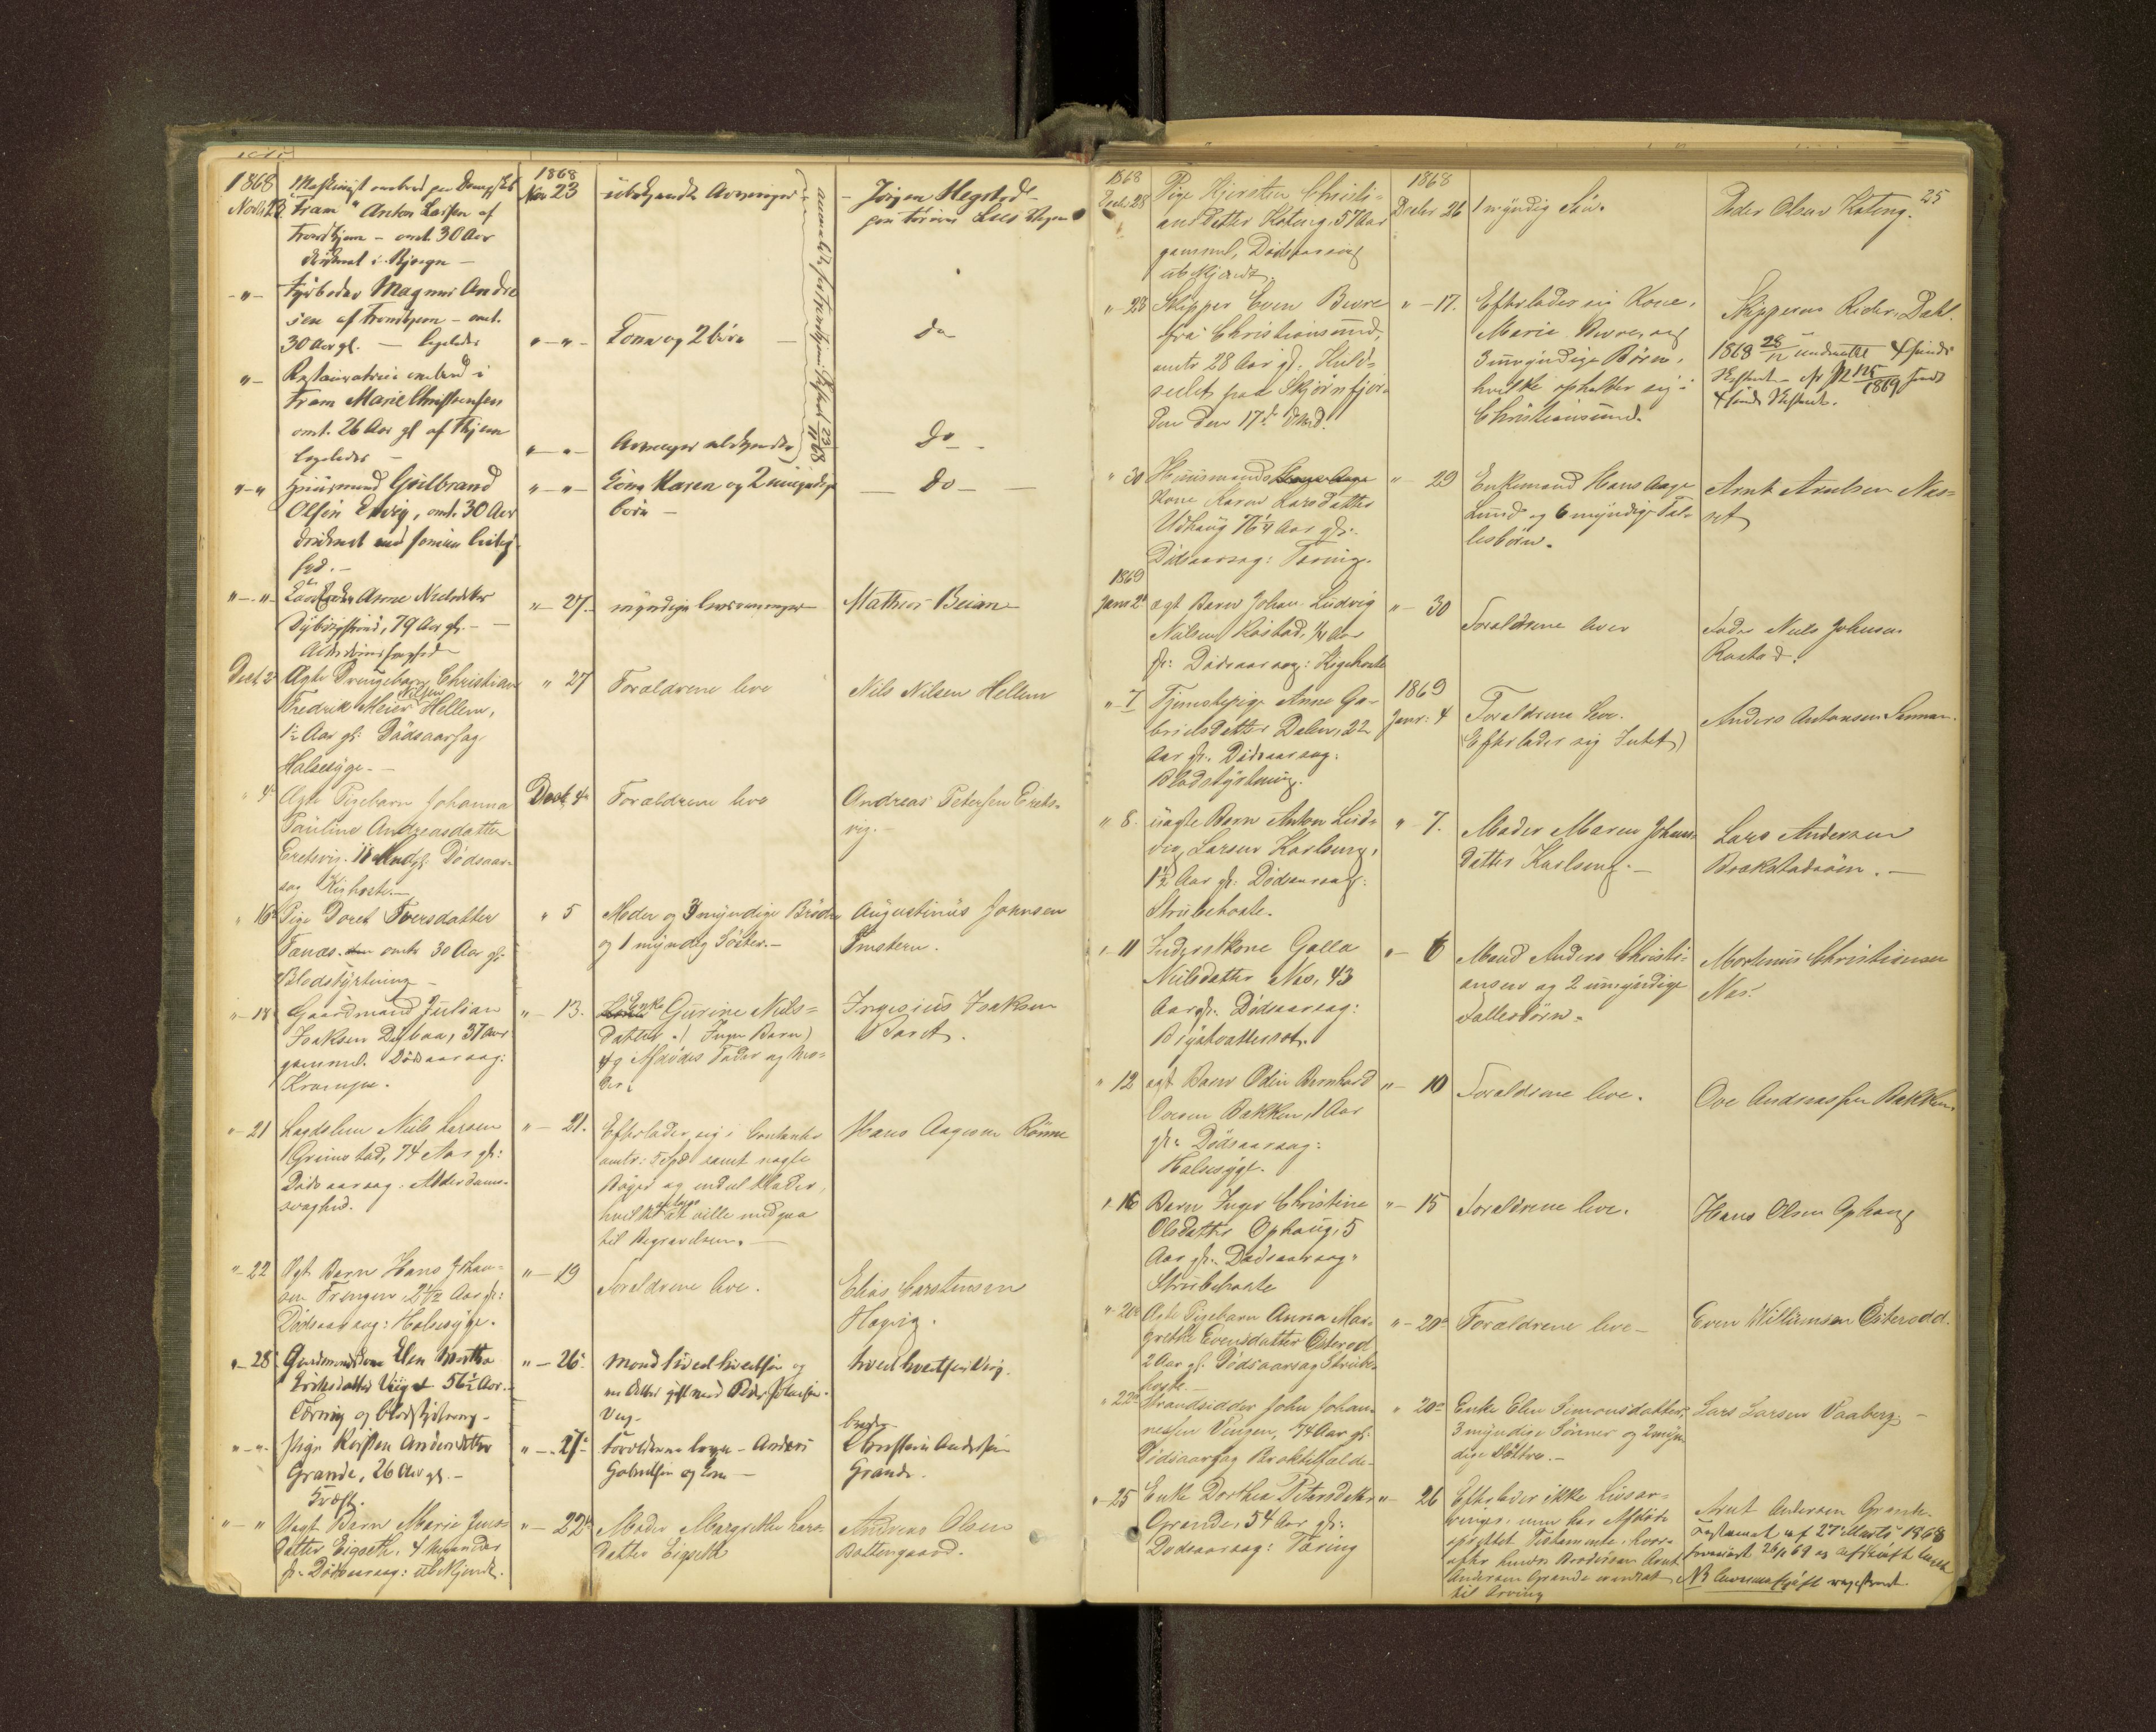 1868
Maskinist ombord paa Dampskib
Novbr 23
Fram" Anton Larsen af
Trondhjem – omt. 30 Aar
druknet i Bjugn –
1868
Nov 23
ubekjendte Arvinger
anmeldt for Trondhjems Skifteret 23/11 68
Jørgen Hegstad
-"- Fyrbøder Magnus Andre
sen af Trondhjem – omt.
30 Aar gl. – ligeledes
"-"- Kone og 2 børn
do
"- Restauratrice ombord i
Fram Marie Christensen
omt. 26 Aar gl af Thjem
ligeledes –
"-"- Arvinger ubekjendte
do
"-" Huusmand Guilbrand
Olsen Ervig, omt. 30 Aar
druknet
"-"- Kone Karen og 2 umyndige
børn –
– do –
"-"- Anne Nielsdatter
Dybvigstrand, 79 Aar gl. –
Alderdomssvaghed
"- 27. myndige Livsarvinger
Matheus Beian
Decbr 2 Ægte Drengebarn Christian
Nilsen
Fredrik Meier Hellem,
1½ Aar gl: Dødsaarsag
Halsesyge. –
" 27 Forældrene leve
Nils Nilsen Hellem
" 4 Ægte Pigebarn Johanna
Pauline Andreasdatter
Eretsvig. 11 Mndgl. Dødsaar-
sag Kighoste. –
Decbr 4 Forældrene leve
Andreas Petersen Erets-
vig. –
" 16 Pige Doret Iversdatter
Tanas. omtr 30 Aar gl.
Blodstyrtning –
" 5 Moder og 3 myndige Brødre
og 1 myndig Søster. –
Augustinus Johnsen
"- 18 Gaardmand Julian
Isaksen Dybaa, 37 Aar
gammel. Dødsaarsag:
Krampe.
"- 13. Enke Gurine Niels-
datter. (Ingen Børn)
og Afdødes Fader og Mo-
der.
Ingesius Isaksen
"- 21 Lægdslem Niels Larsen
Grimstad, 74 Aar gl:
Dødsaarsag: Alderdoms-
svaghed.
"- 21. Efterlader sig i Contanter
omtr: 5 Spd samt nogle
Bøger og endel Klæder,
hvilket at ville medgaa
til Begravelsen. –
Hans Aagesen Rønne
"- 22 Ægt Barn Hans Johan-
sen Trengen, 2 1/12 Aar gl:
Dødsaarsag: Halsesyge.
"- 19 Forældrene leve.
Elias Carstensen
Hagvig.
"- 28 Gaardmandskone Elen Martha
Eriksdatter Viig 56½ Aar. –
Tæring og Blodstyrtning –
"- 26. Mand Sivert Sivertsen og
en datter gift med Peder
Viig –
Sivert Sivertsen Viig.
"-"- Pige Kirsten Andersdatter
Grande, 26 Aar gl. –
Kræft.
"- 27. Forældrene leve – Anders
Gabrielsen og Kone –
broder
Christian Andersen
Grande.
"-" Uægt Barn Marie Jens-
datter Eigseth. 4 Maaneder
gl. Dødsaarsag: ubekjendt.
"- 22. Moder Margrethe Lars-
datter Eigseth
Andreas Olsen
Bottengaard.
25
1868
Decbr 28 Pige Kjersten Christi-
andatter Koteng, 57 Aar
gammel, Dødsaarsag
ubekjendt.
1868
Decbr 26 1 myndig Søn.
Peder Olsen Koteng.
" 28 Skipper Even Buvre
fra Christianssund,
omtr 28 Aar gl: Kuld-
seilet paa Skjørnfjor-
den den 17de dMd.
"- 17. Efterlader sig Kone,
Marie Buvre, og
3 umyndige Børn,
hvilke opholder sig i
Christianssund.
Skipperens Reder, Dahl.
1868 28/12 underrettet Xsunds
Skifteret
Xsunds Skifteret.
" 30 Huusmands
Kone Karen Larsdatter
Udhaug 76¼ Aar gl:.
Dødsaarsag: Tæring.
"- 29 Enkemand Hans Aage
Lund og 6 myndige Fæl-
lesbørn.
Arnt Arntsen Næs-
set
1869
Janr 2 ægt Barn Johan Ludvig
Nielsen Rostad, ¼ Aar
gl: Dødsaarsag: Kighoste
"- 30 Forældrene lever
Fader Niels Johnsen
Rostad.
"- 7 Tjenestepige Anne Ga-
brielsdatter Dalen, 22
Aar gl. Dødsaarsag:
Blodstyrtning.
1869
Janr: 4 Forældrene leve.
(Efterlader sig Intet)
Anders Antonsen
" 8. uægte Barn Anton Lud-
vig Larsen Karlseng,
1½ Aar gl: Dødsaarsag:
Strubehoste.
"- 7. Moder Maren Johans-
datter Karlseng. –
Lars Andersen
Brækstadøien. –
"- 11 Inderstkone Golla
Nielsdatter Næs, 43
Aar gl. Dødsaarsag:
Brystvattersot.
"- 6 Mand Anders Christi-
ansen og 2 umyndige
Fællesbørn.
Mortinus Christiansen
Næs.
" 12 ægt Barn Odin Bernhard
Ovesen Bakken, 1 Aar
gl: Dødsaarsag:
Halsesyge.
"- 10 Forældrene leve.
Ove Andreassen Bakken
"- 16 Barn Inger Christine
Olsdatter Ophaug, 5
Aar gl. Dødsaarsag:
Strubehoste
"- 15 Forældrene leve.
Hans Olsen Ophaug
"- 20 Ægte Pigebarn Anna Mar-
grethe Evensdatter Østerod
2 Aar gl. Dødsaarsag Strube-
hoste –
"- 20 Forældrene leve –
Even Williamsen Østerodd.
"- 22 Strandsidder John Johan-
nessen Vingen, 74 Aar gl.
Dødsaarsag Broktilfælde
" 20 Enke Elen Simonsdatter,
3 myndige Sønner og 2 myn
dige Døttre. –
Lars Larsen Vaaberg –
"- 25 Enke Dorthea Petersdatter
Grande, 54 Aar gl:
Dødsaarsag: Tæring
"- 26 Efterlader ikke Livsar-
vinger, men har Afdøde
oprettet Testamente, hvor-
efter hendes Brodersøn Arnt
Andersen Grande er indsat
til Arving
Arnt Andersen Grande
Testament af 27 Marts 1868
26/1 69 og Afskrift
NB